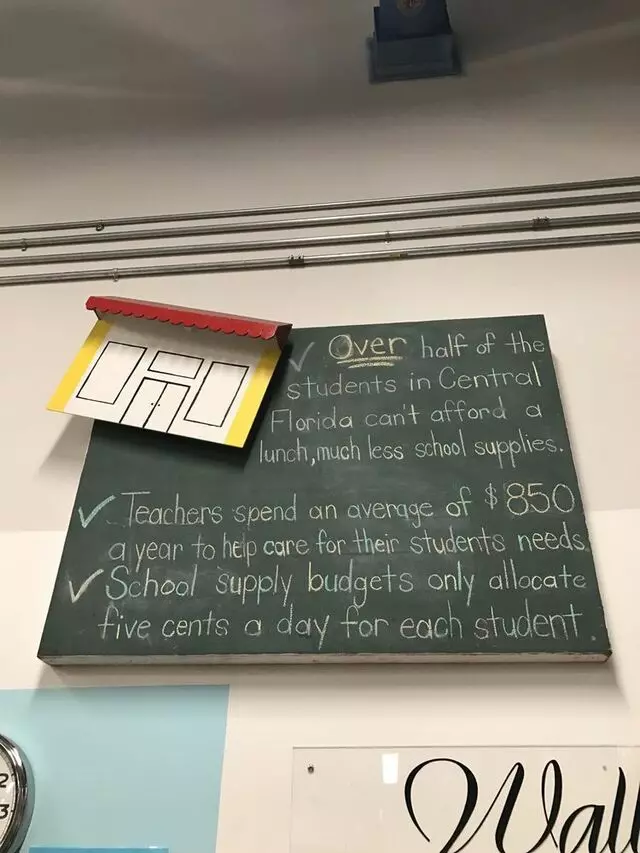 ✓ Over half of the
students in Central
Florida can't afford a
lunch, much less school supplies.
✓ Teachers spend an average of $850
a year to help care for their students needs.
✓ School supply budgets only allocate
five cents a day for each student.
2
3
Wall